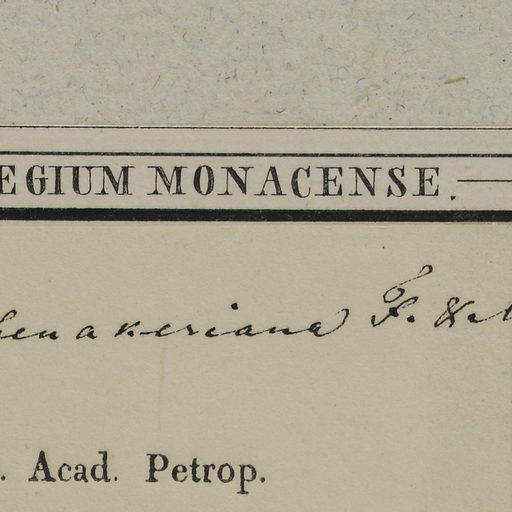 EGIUM MONACENSE.
henakeriana F. & M
. Acad. Petrop.